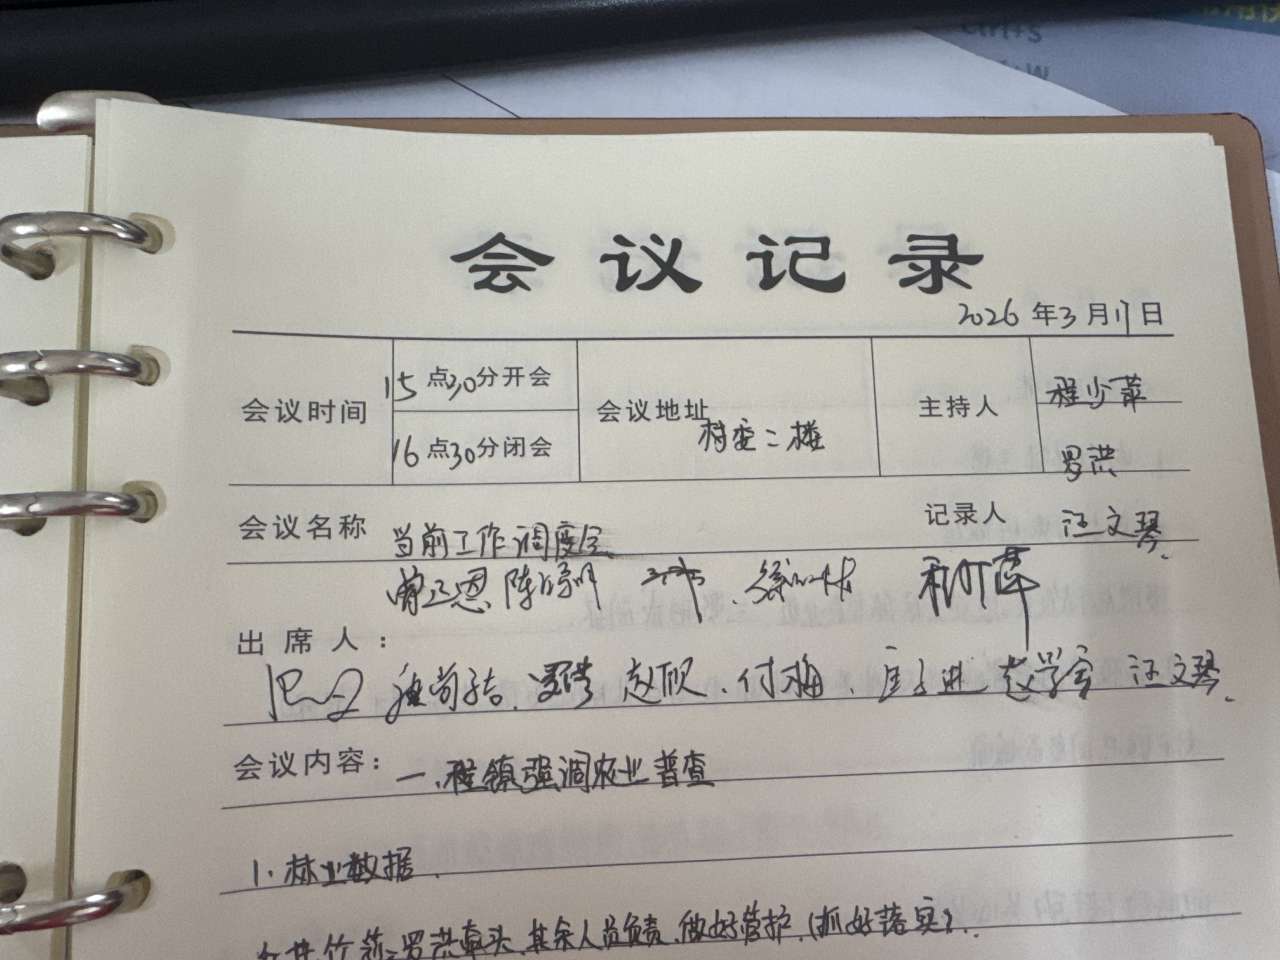 Ctrl+S
会议记录
2026年3月17日
会议时间 15点30分开会 会议地址 村委二楼 主持人 程少苹
16点30分闭会 罗洪
会议名称 当前工作调度会 记录人 汪文琴
曾正恩 陈
出席人：
罗洪 赵欣、付梅、 赵学宏 汪文琴
会议内容：一、程镇强调农业普查
1、林业数据
罗洪牵头,其余人员负责,做好管护,(抓好落实)